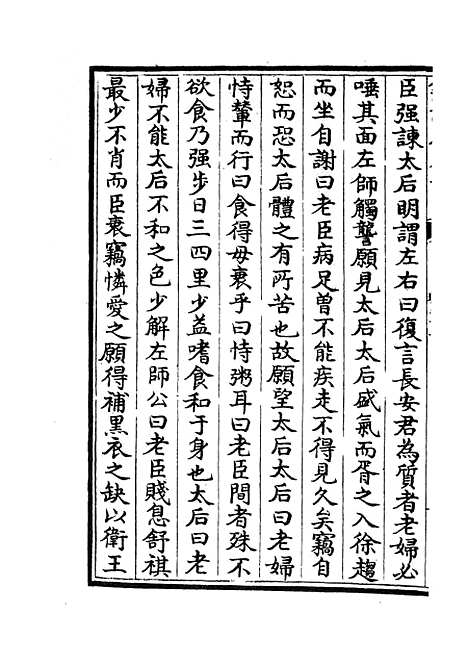 臣强諫太后明謂左右曰復言長安君為質者老婦必
唾其面左師觸讋願見太后太后盛氣而胥之入徐趨
而坐自謝曰老臣病足曽不能疾走不得見久矣竊自
恕而恐太后體之有所苦也故願望太后太后曰老婦
恃輦而行曰食得毋衰乎曰恃粥耳曰老臣間者殊不
欲食乃强步日三四里少益嗜食和于身也太后曰老
婦不能太后不和之色少解左師公曰老臣賤息舒祺
最少不肖而臣衰竊憐愛之願得補黒衣之缺以衛王